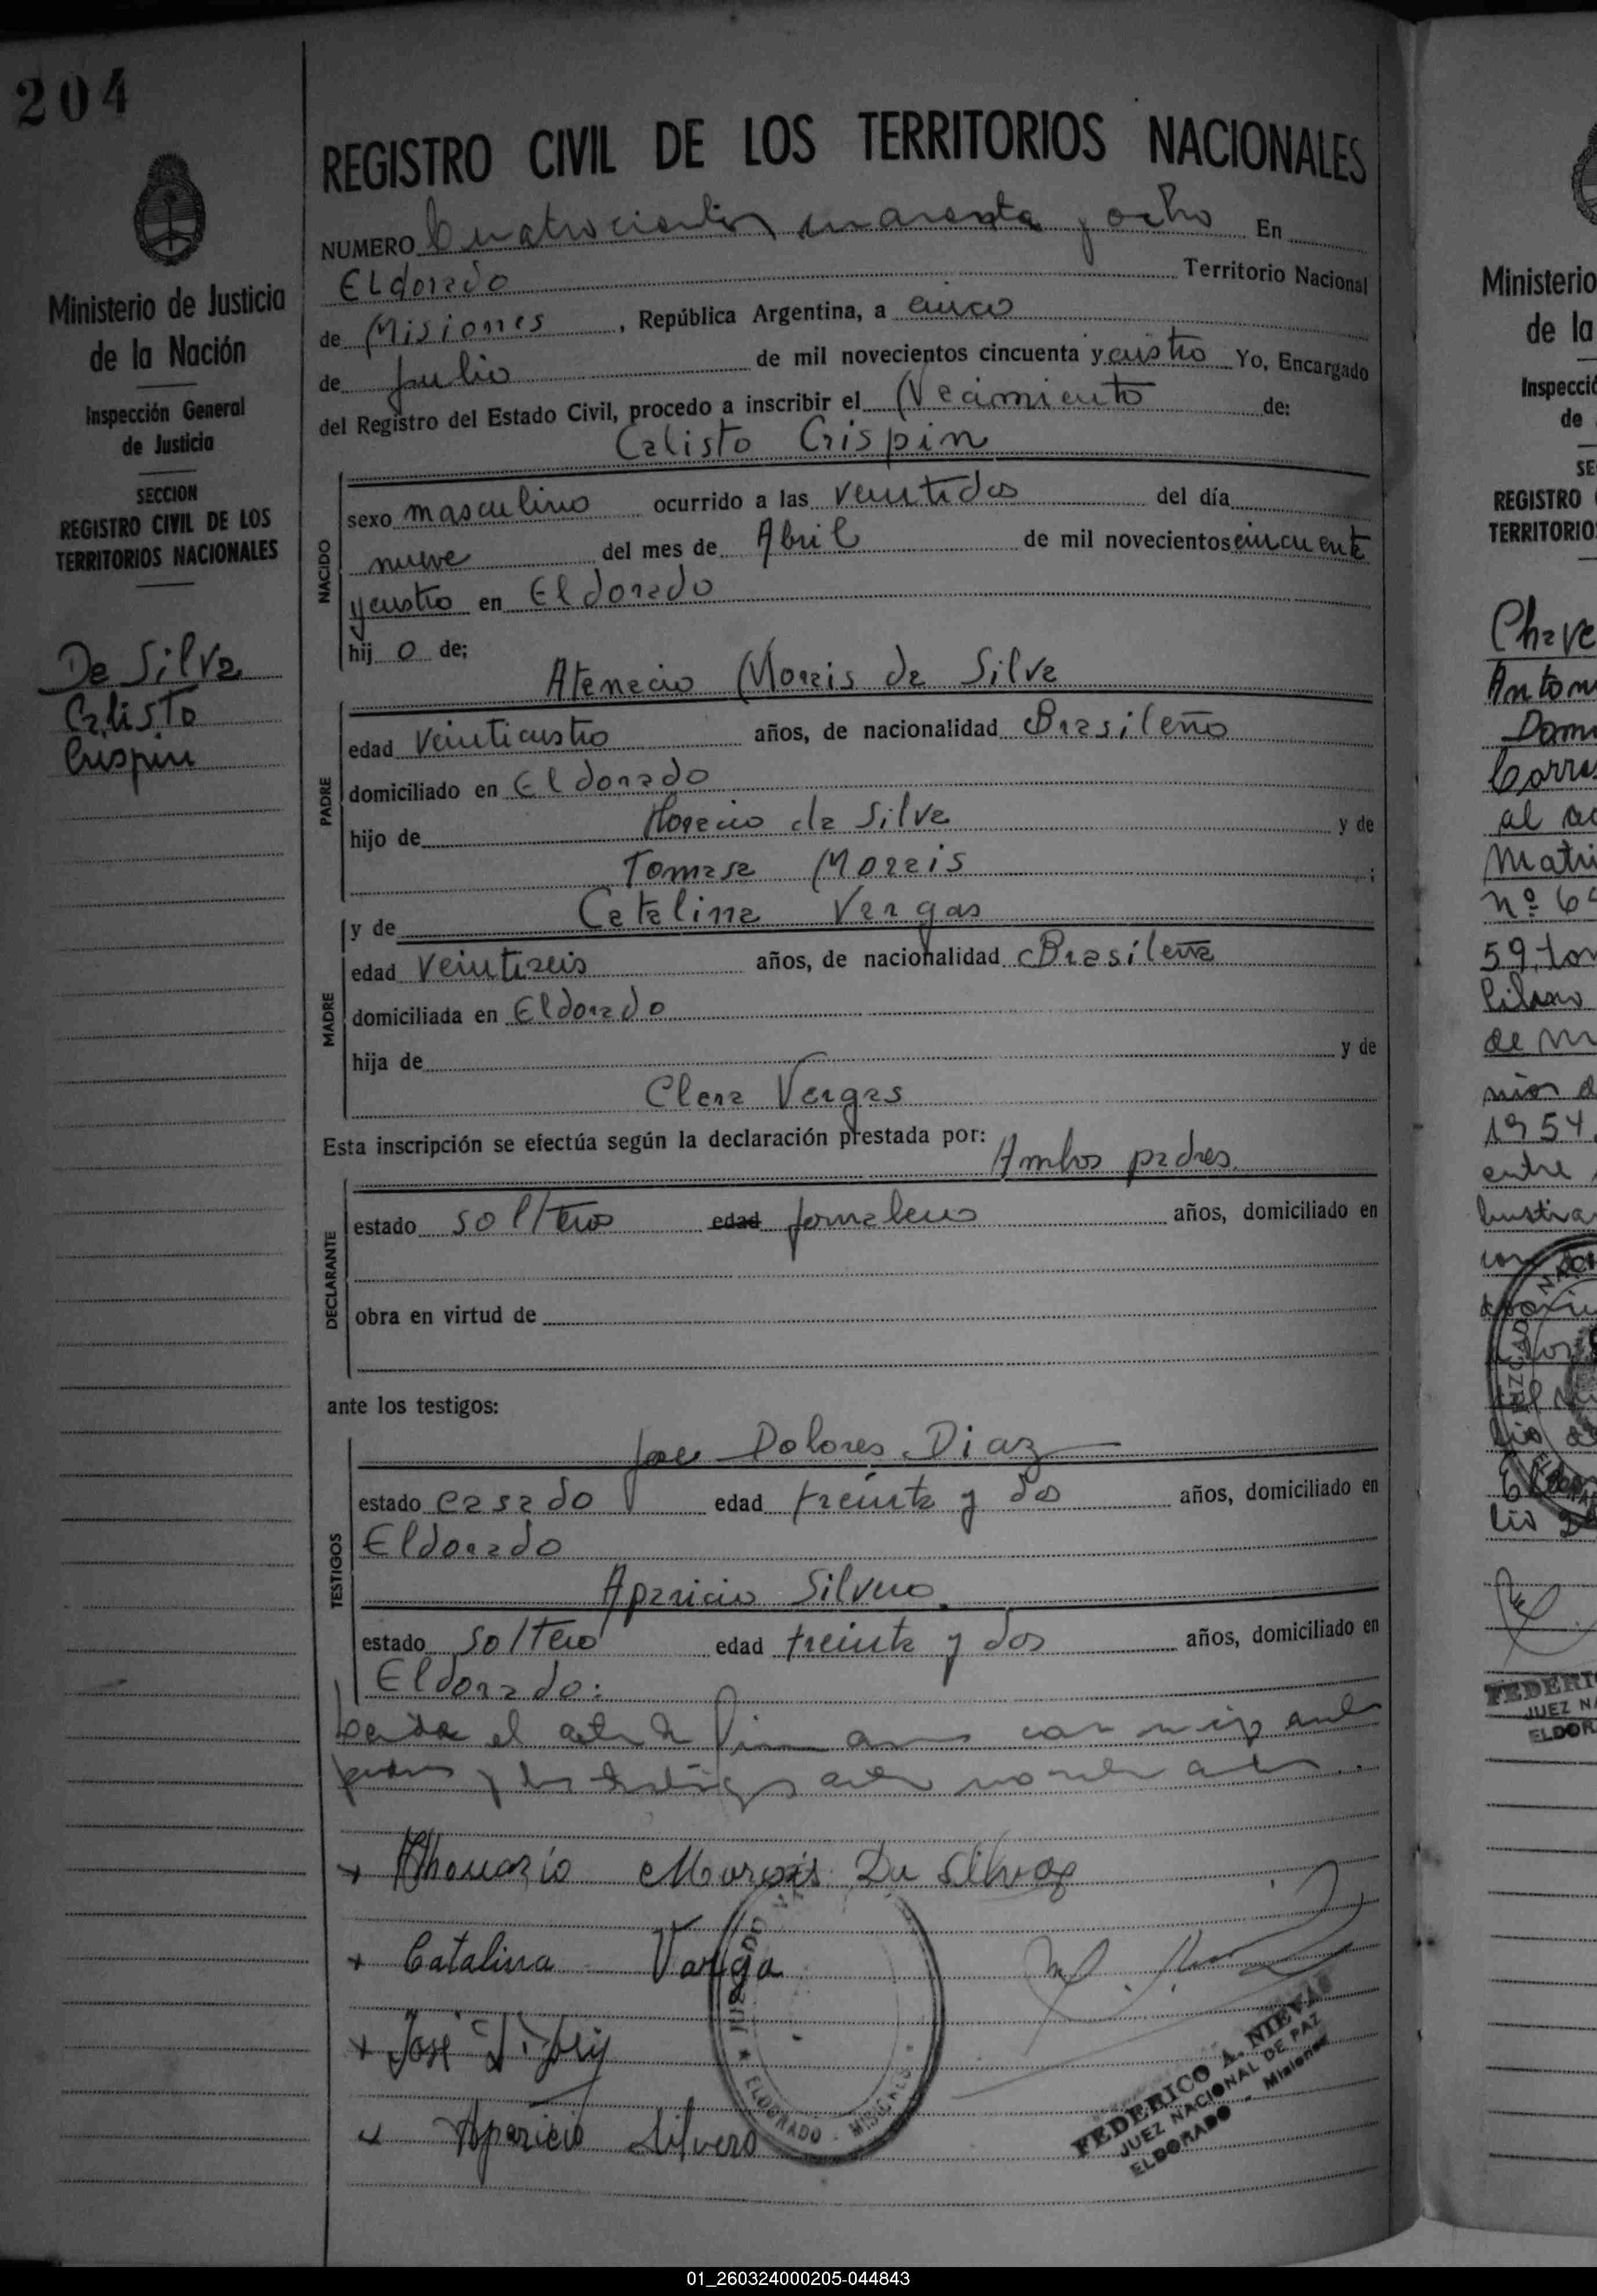 204
REGISTRO CIVIL DE LOS TERRITORIOS NACIONALES
Ministerio de Justicia
de la Nación
Inspección General
de Justicia
SECCION
REGISTRO CIVIL DE LOS
TERRITORIOS NACIONALES
De Silva
Calisto
Crispin
NUMERO Cuatrocientos cuarenta y ocho En
Eldorado Territorio Nacional
de Misiones, República Argentina, a cinco
de Julio de mil novecientos cincuenta y cuatro Yo, Encargado
del Registro del Estado Civil, procedo a inscribir el Nacimiento de:
Calisto Crispin
NACIDO
sexo masculino ocurrido a las veintidos del día
nueve del mes de Abril de mil novecientos cincuenta
y cuatro en Eldorado
hij o de;
Atanacio Morais da Silva
PADRE
edad Veinticuatro años, de nacionalidad Brasileño
domiciliado en Eldorado
hijo de Horacio da Silva y de
Tomasa Morais ;
MADRE
y de Catalina Vargas
edad Veintiseis años, de nacionalidad Brasileña
domiciliada en Eldorado
hija de y de
Clara Vargas
Esta inscripción se efectúa según la declaración prestada por:
Ambos padres
DECLARANTE
estado solteros edad jornaleros años, domiciliado en
obra en virtud de
ante los testigos:
TESTIGOS
Jose Dolores Diaz
estado casado edad treinta y dos años, domiciliado en
Eldorado
Aparicio Silvero
estado soltero edad treinta y dos años, domiciliado en
Eldorado.
el acta
y los testigos
Morais Da Silva
Catalina Varga
José
Aparicio Silvero
JUZGADO
ELDORADO - MISIONES
FEDERICO A. NIEVAS
JUEZ NACIONAL DE PAZ
ELDORADO - Misiones
Ministerio
de la
Inspecció
de
SE
REGISTRO
TERRITORIO
Chave
Anton
Dom
al
Matri
nº 6
59
de
1954
entre
FEDERI
JUEZ N
ELDOR
01_260324000205-044843